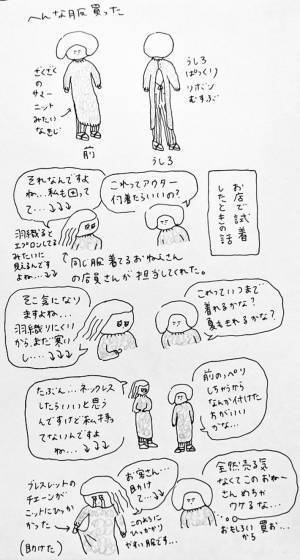 へんな服買った
ざくざく
の
サマー
ニット
みたい
なきじ
前
うしろ
ぱっくり
リボン
むすぶ
うしろ
お店で試着
したときの
話
これってアウター
何着たらいいの?
それなんですよ
ね…私も困って
て…
羽織ると
エプロンしてる
みたいに
見えるんです
よね…
同じ服着てるおねえさん
の店員さんが担当してくれた。
これっていつまで
着れるかな?
夏も着れるかな?
そこ気になり
ますよね…
羽織りにくい
から、まだ寒い
し…
前のっぺり
しちゃうから
なんか付けた
方がいい
かな…
たぶん…ネックレス
したらいいと思う
んですけど私も持
てないんですよ
ね…
お客さん…
助けて…
このように
ひっかかり
やすい服です…
ブレスレットの
チェーンが
ニットにひっか
かった
(助けた)
全然売る気
なくてこのおねー
さんめちゃ
ウケるな…
おもしろい
から
買お…